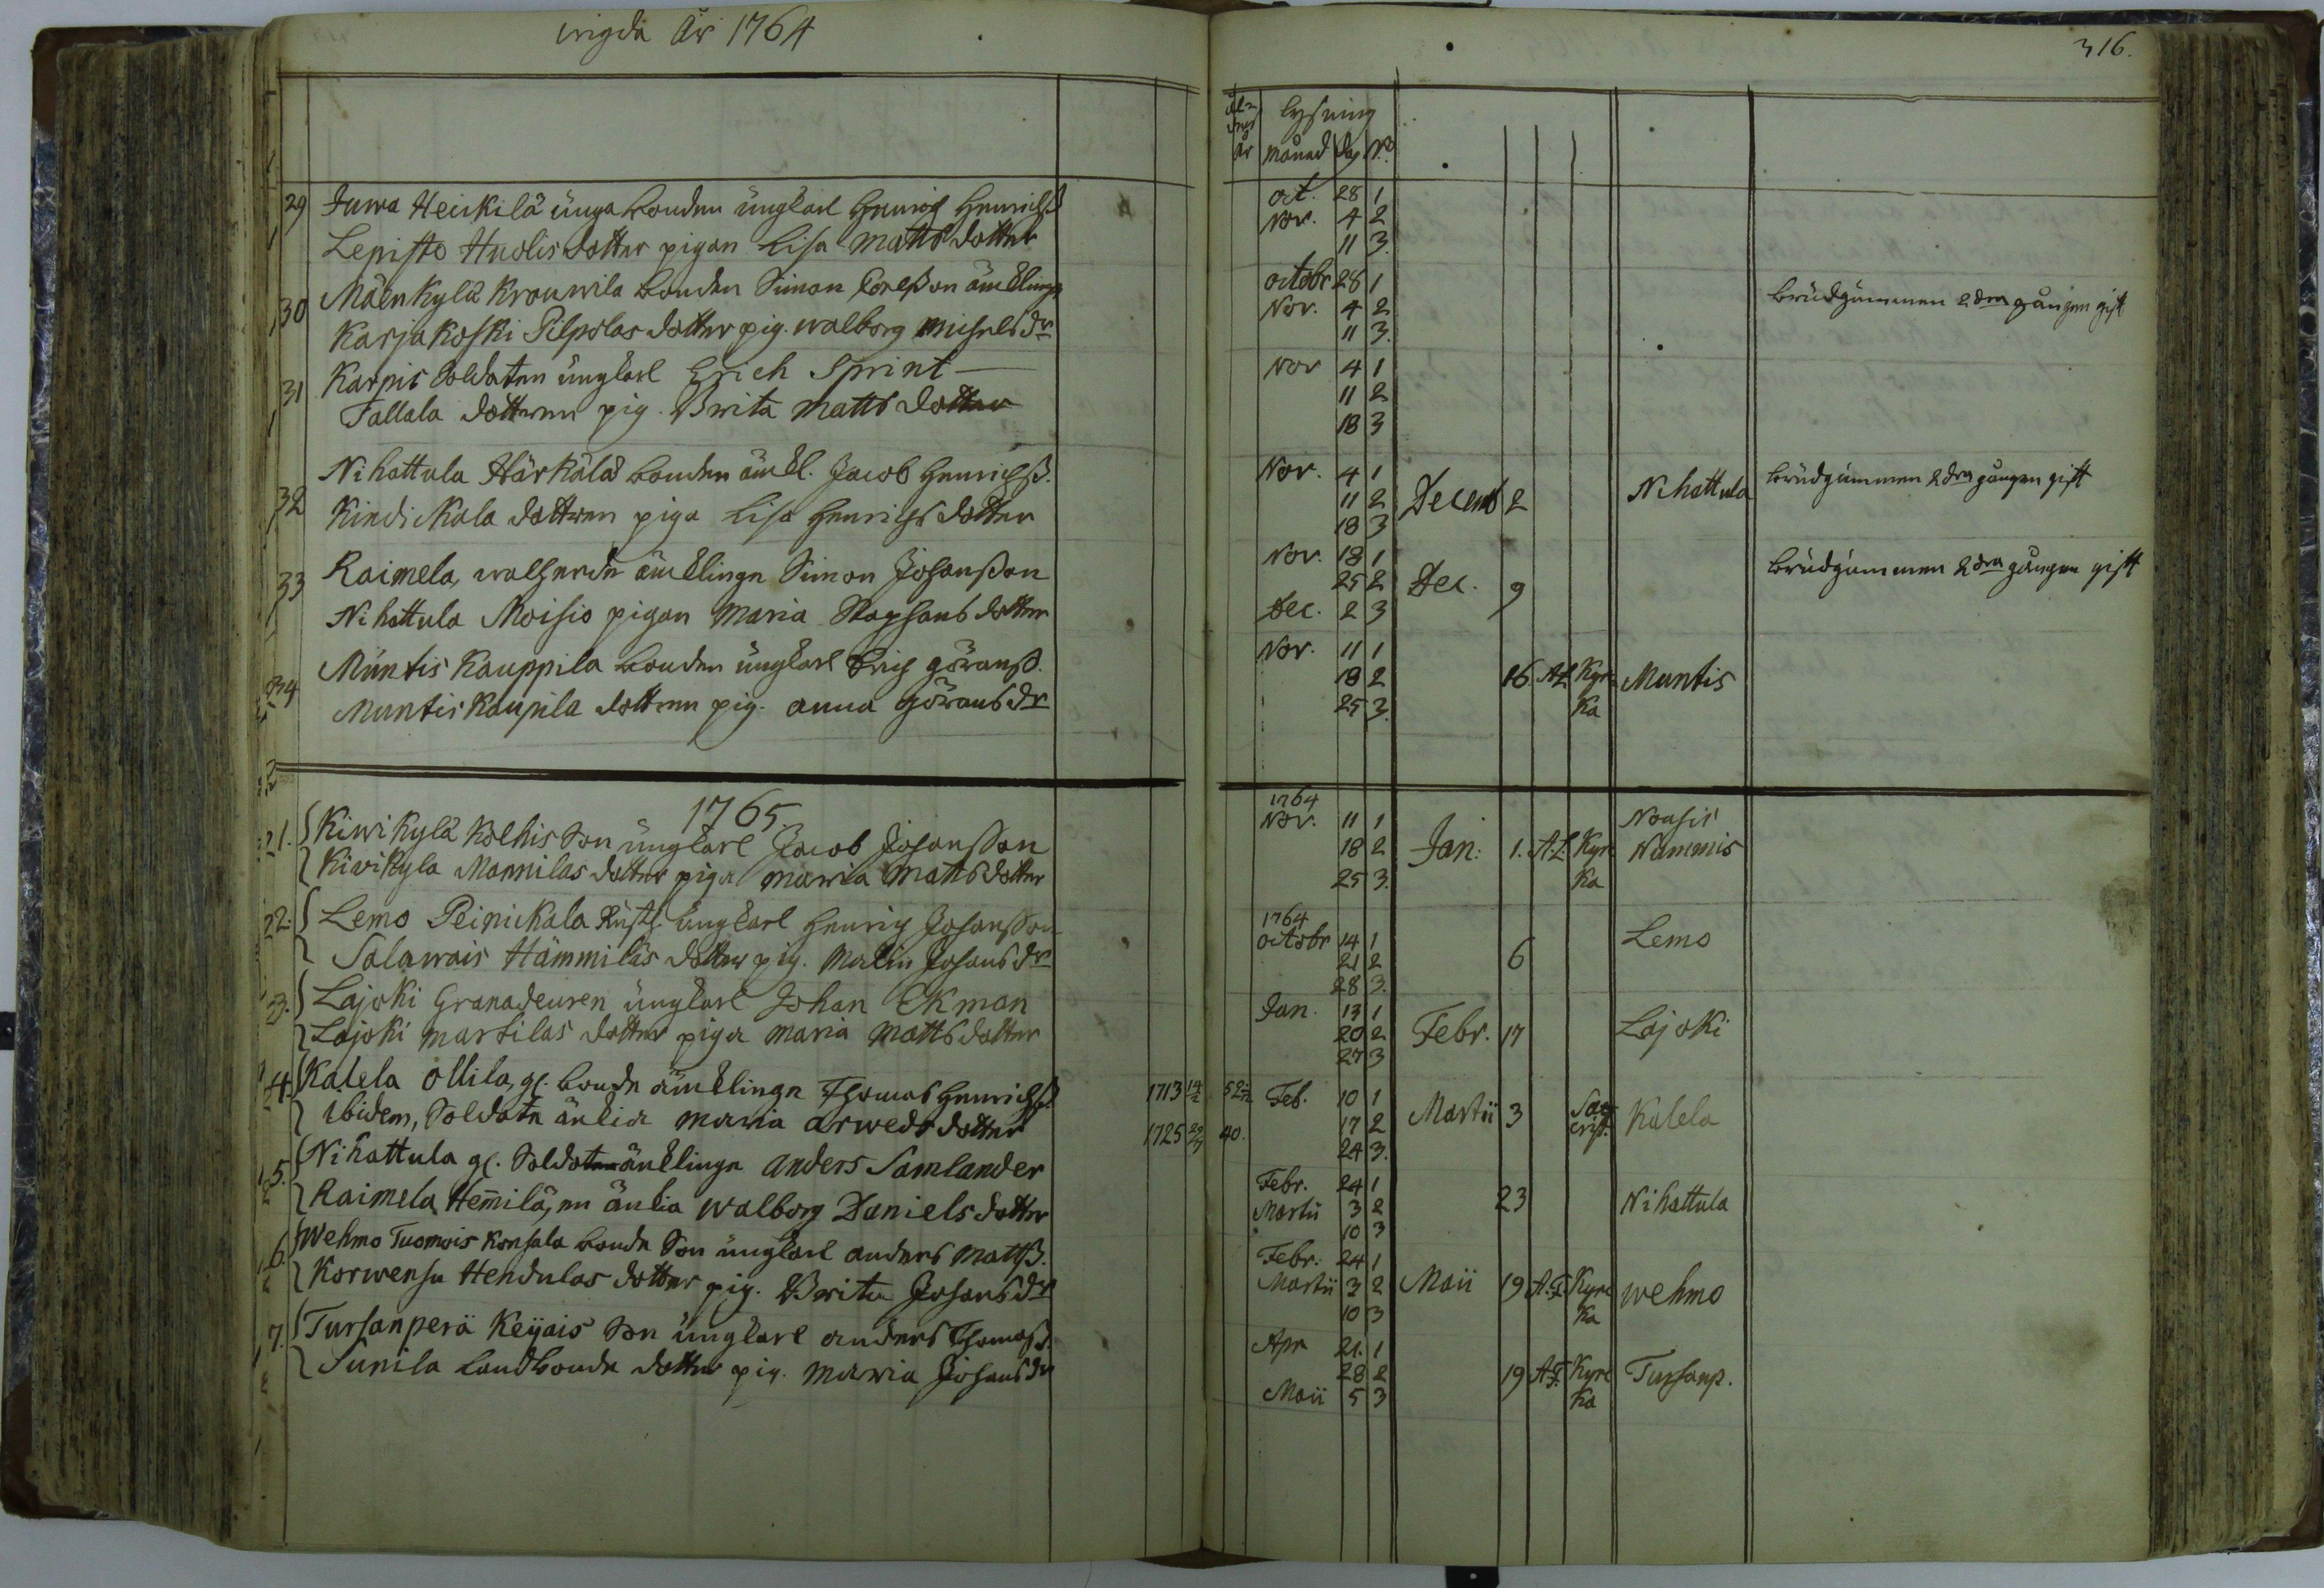 wigda År 1764
316.
ål-
ders
år
lysning
månad dag No
29 Juwa Heickilä unga bonden ungkarl Henrich Henrichss
Lepisto Huolis dotter pigan Lisa Matts dotter
oct. 28 1
Nov. 4 2
11 3.
30 Mäenkylä Krouwila bonden Simon Ersson änkling
Karjakoski Pilpolas dotter pig. walborg Michels dr
octobr 28 1
Nov. 4 2
11 3.
Brudgummen 2dra gången gift
31 Karpis Soldaten ungkarl Erich Sprint
Tallala dottren pig. Brita Matts dotter
Nov 4 1
11 2
18 3
32 Nihattula Härkälä bonden änkl. Jacob Henrichss.
Kindickala dottren piga Lisa Henrichs dotter
Nov. 4 1
11 2
18 3
Decemb 2
Nihattula
Brudgummen 2dra gången gift
33 Raimela, walhende änklingen Simon Johansson
Nihattula Moisio pigan Maria Staphans dotter
Nov. 18 1
25 2
Dec. 2 3
Dec. 9
Brudgummen 2dra gången gift
34 Muntis Kauppila bonden ungkarl Erich Göranss.
Muntis Kaupila dottren pig. anna Görans dr
Nov. 11 1
18 2
25 3.
16 A.L. Kyr-
ka
Muntis
1765.
1. Kiwikylä Kölhis Son ungkarl Jacob Johansson
Kiwikyla Mannilas dotter piga Maria Matts dotter
1764
Nov. 11 1
18 2
25 3.
Jan: 1. A.L. Kyr-
ka
Nousis
Nummis
2. Lemo Peinickala Rusth. ungkarl Henrich Johansson
Salawais Hämmiläs dotter pig. Malin Johans dr
1764
octobr 14 1
21 2
28 3.
6
Lemo
3. Lajoki Granadeuren ungkarl Johan Ekman
Lajoki Martilas dotter piga Maria Matts dotter
Jan. 13 1
20 2
27 3
Febr. 17
Lajoki
4. Kalela ollila, gl. bonde änklingen Thomas Henrichss.
ibidem, Soldate änkia Maria arweds dotter
1713
1725
40.
Feb. 10 1
17 2
24 3.
Martii 3
Sac-
rist.
Kalela
5. Nihattula gl. Soldaten änklingen anders Samlander
Raimela Hemilä, en änkia walborg Daniels dotter
Febr. 24 1
Martii 3 2
10 3
23
Nihattula
6. Wehmo Tuomois Konsala bonde Son ungkarl anders Mattss.
Korwensu Hendulas dotter pig. Brita Johans dr
Febr. 24 1
Martii 3 2
10 3
Maii 19 A.F. Kyrc
ka
wehmo
7. Tursanperä Keijais Son ungkarl anders Thomass.
Sunila landbonde dotter pig. Maria Johans dr
Apr 21. 1
28 2
Maii 5 3
19 A.F. Kyrc
ka
Tursanp.